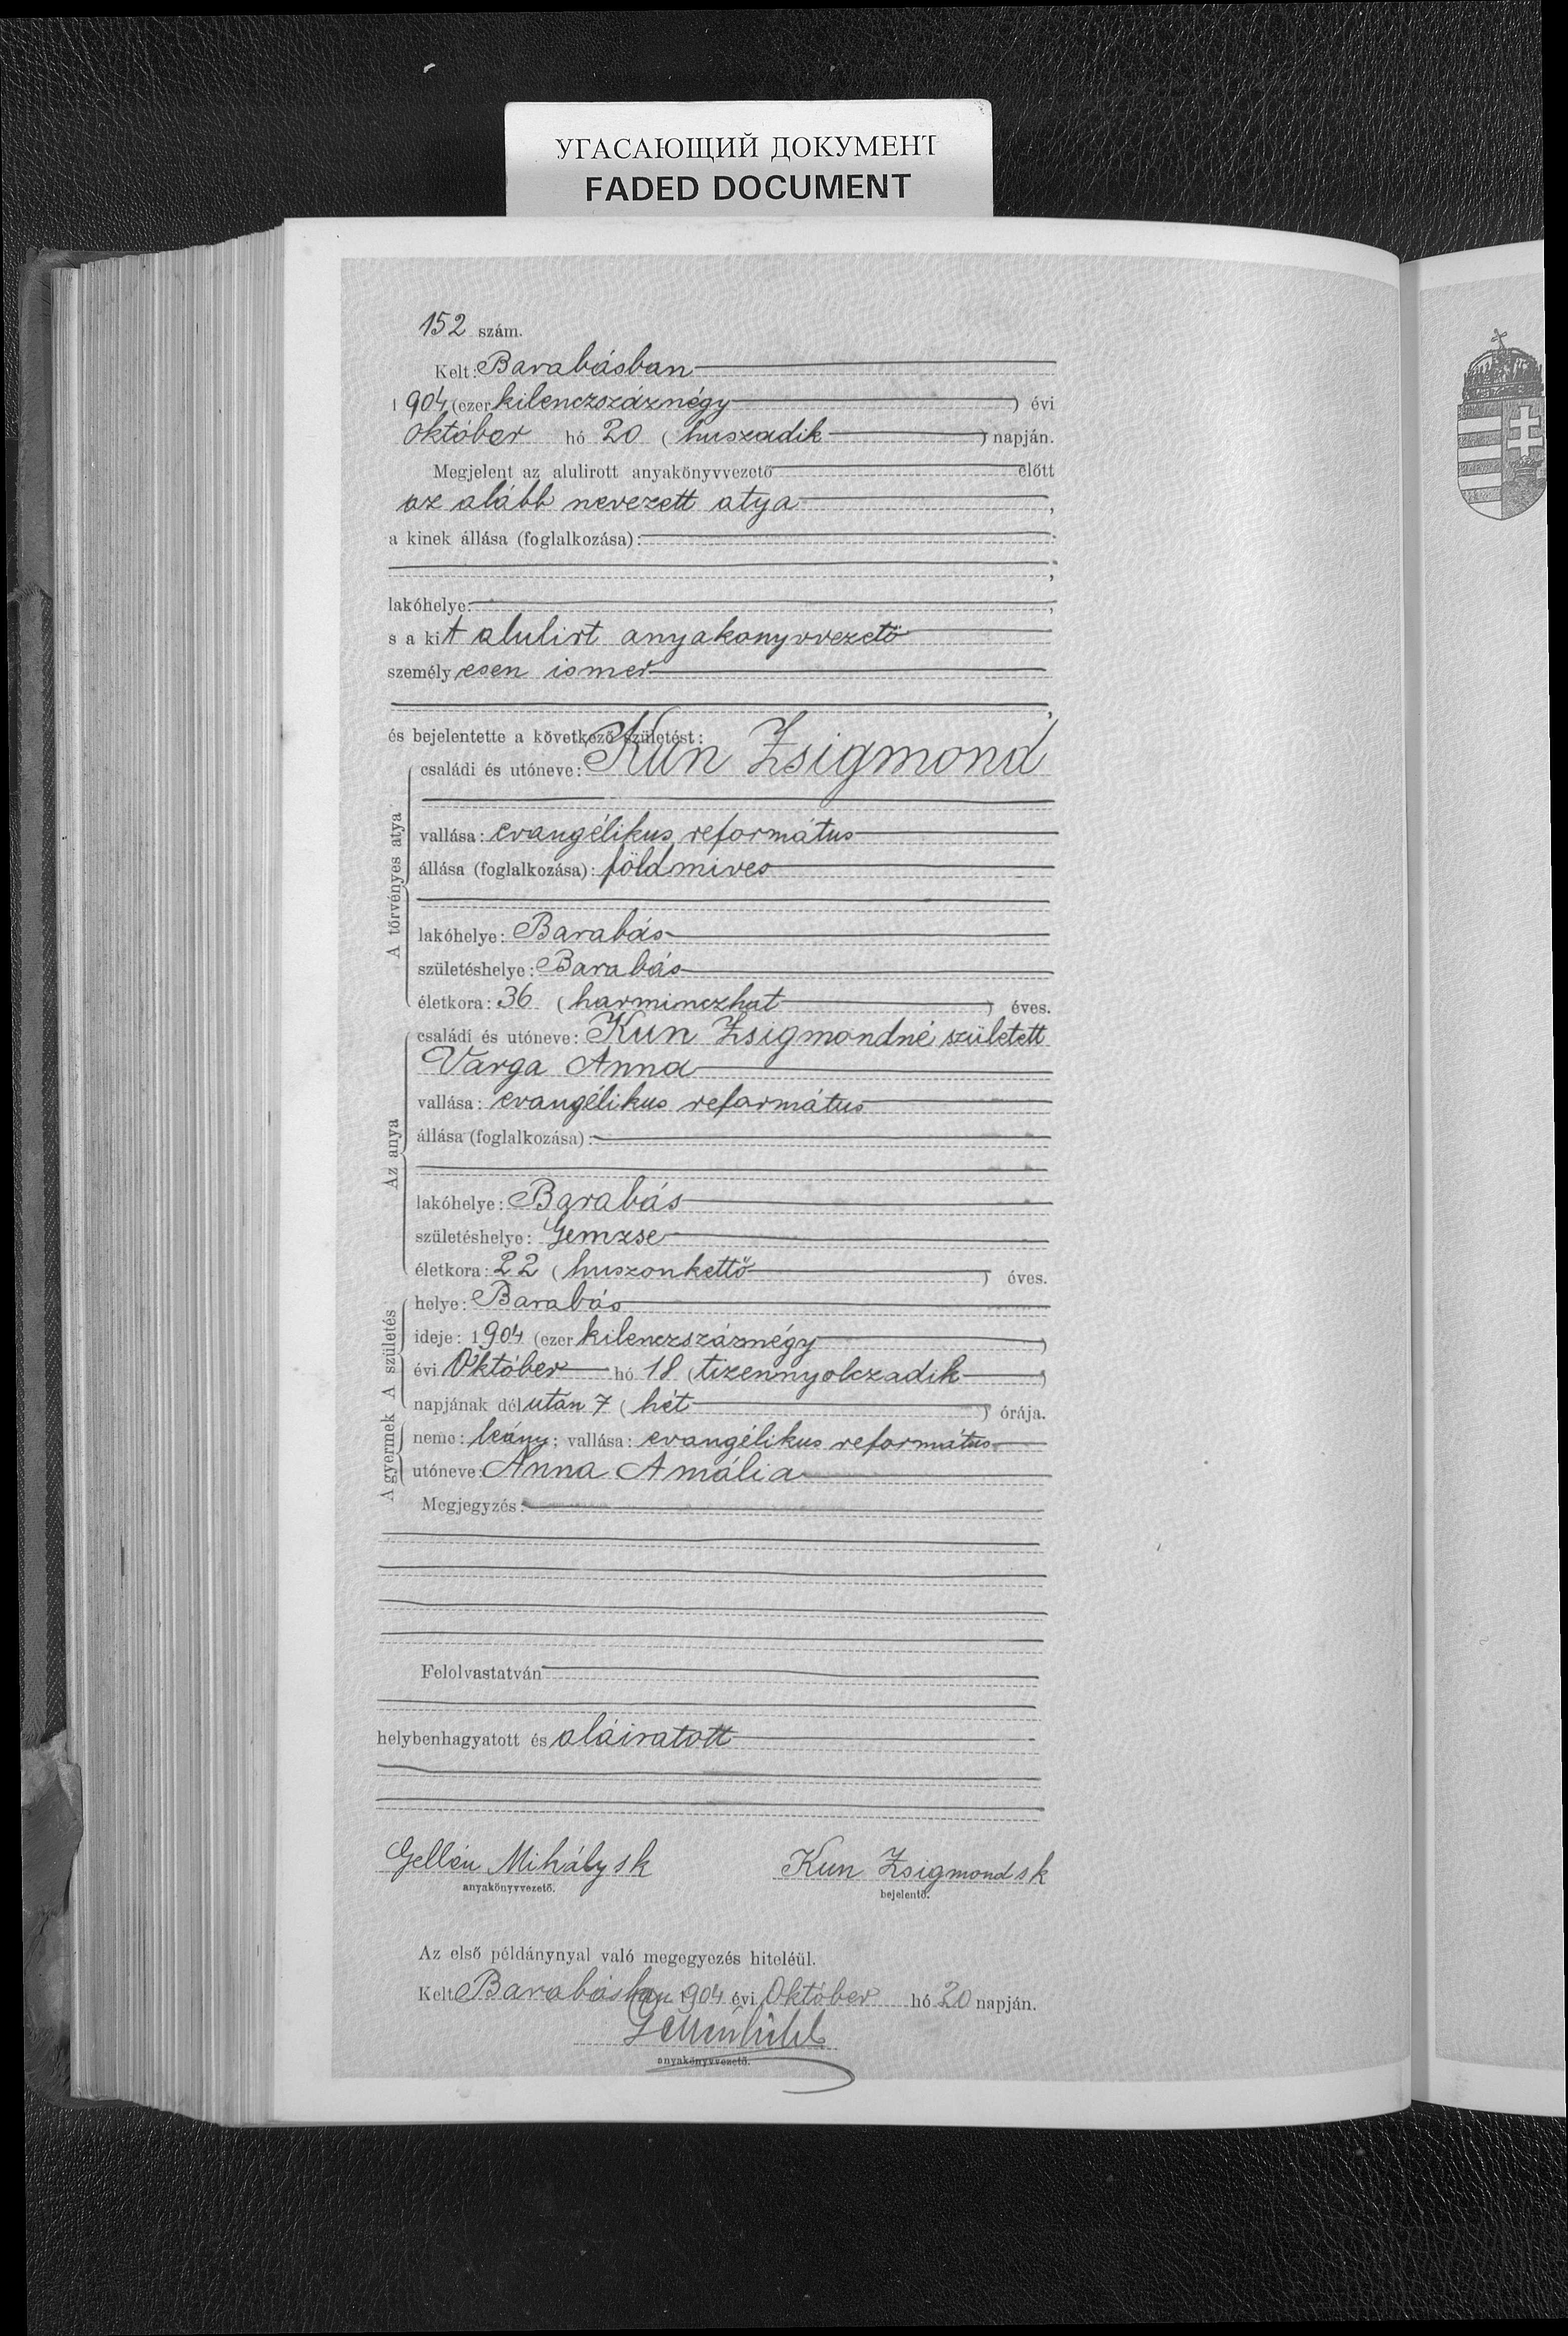 УГАСАЮЩИЙ ДОКУМЕНТ
FADED DOCUMENT
152 szám.
Kelt: Barabásban
1904 (ezer kilenczszáznégy) évi
október hó 20 (huszadik) napján.
Megjelent az alulirott anyakönyvvezető előtt
az alább nevezett atya,
a kinek állása (foglalkozása):
lakóhelye:
s a kit alulirt anyakönyvvezető
személyesen ismer
és bejelentette a következő születést:
A törvényes atya
családi és utóneve: Kun Zsigmond
vallása: evangélikus református
állása (foglalkozása): földmives
lakóhelye: Barabás
születéshelye: Barabás
életkora: 36 (harminczhat) éves.
Az anya
családi és utóneve: Kun Zsigmondné született
Varga Anna
vallása: evangélikus református
állása (foglalkozása):
lakóhelye: Barabás
születéshelye: Gemzse
életkora: 22 (huszonkettő) éves.
A születés
helye: Barabás
ideje: 1904 (ezer kilenczszáznégy)
évi Október hó 18 (tizennyolczadik)
napjának délután 7 (hét) órája.
A gyermek
neme: leány; vallása: evangélikus református
utóneve: Anna Amália
Megjegyzés:
Felolvastatván
helybenhagyatott és aláiratott
Gellén Mihály sk Kun Zsigmond sk
anyakönyvvezető. bejelentő.
Az első példánynyal való megegyezés hiteléül.
Kelt Barabásban 1904 évi Október hó 20 napján.
anyakönyvvezető.